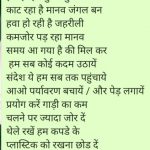 काट रहा है मानव जंगल बन
हवा हो रही है जहरीली
कमजोर पड़ रहा मानव
समय आ गया है की मिल कर
हम सब कोई कदम उठायें
संदेश ये हम सब तक पहुंचाये
आओ पर्यावरण बचायें / और पेड़ लगायें
प्रयोग करें गाड़ी का कम
चलने पर ज्यादा जोर दें
थेले रखें हम कपडे के
प्लास्टिक को रखना छोड़ दें